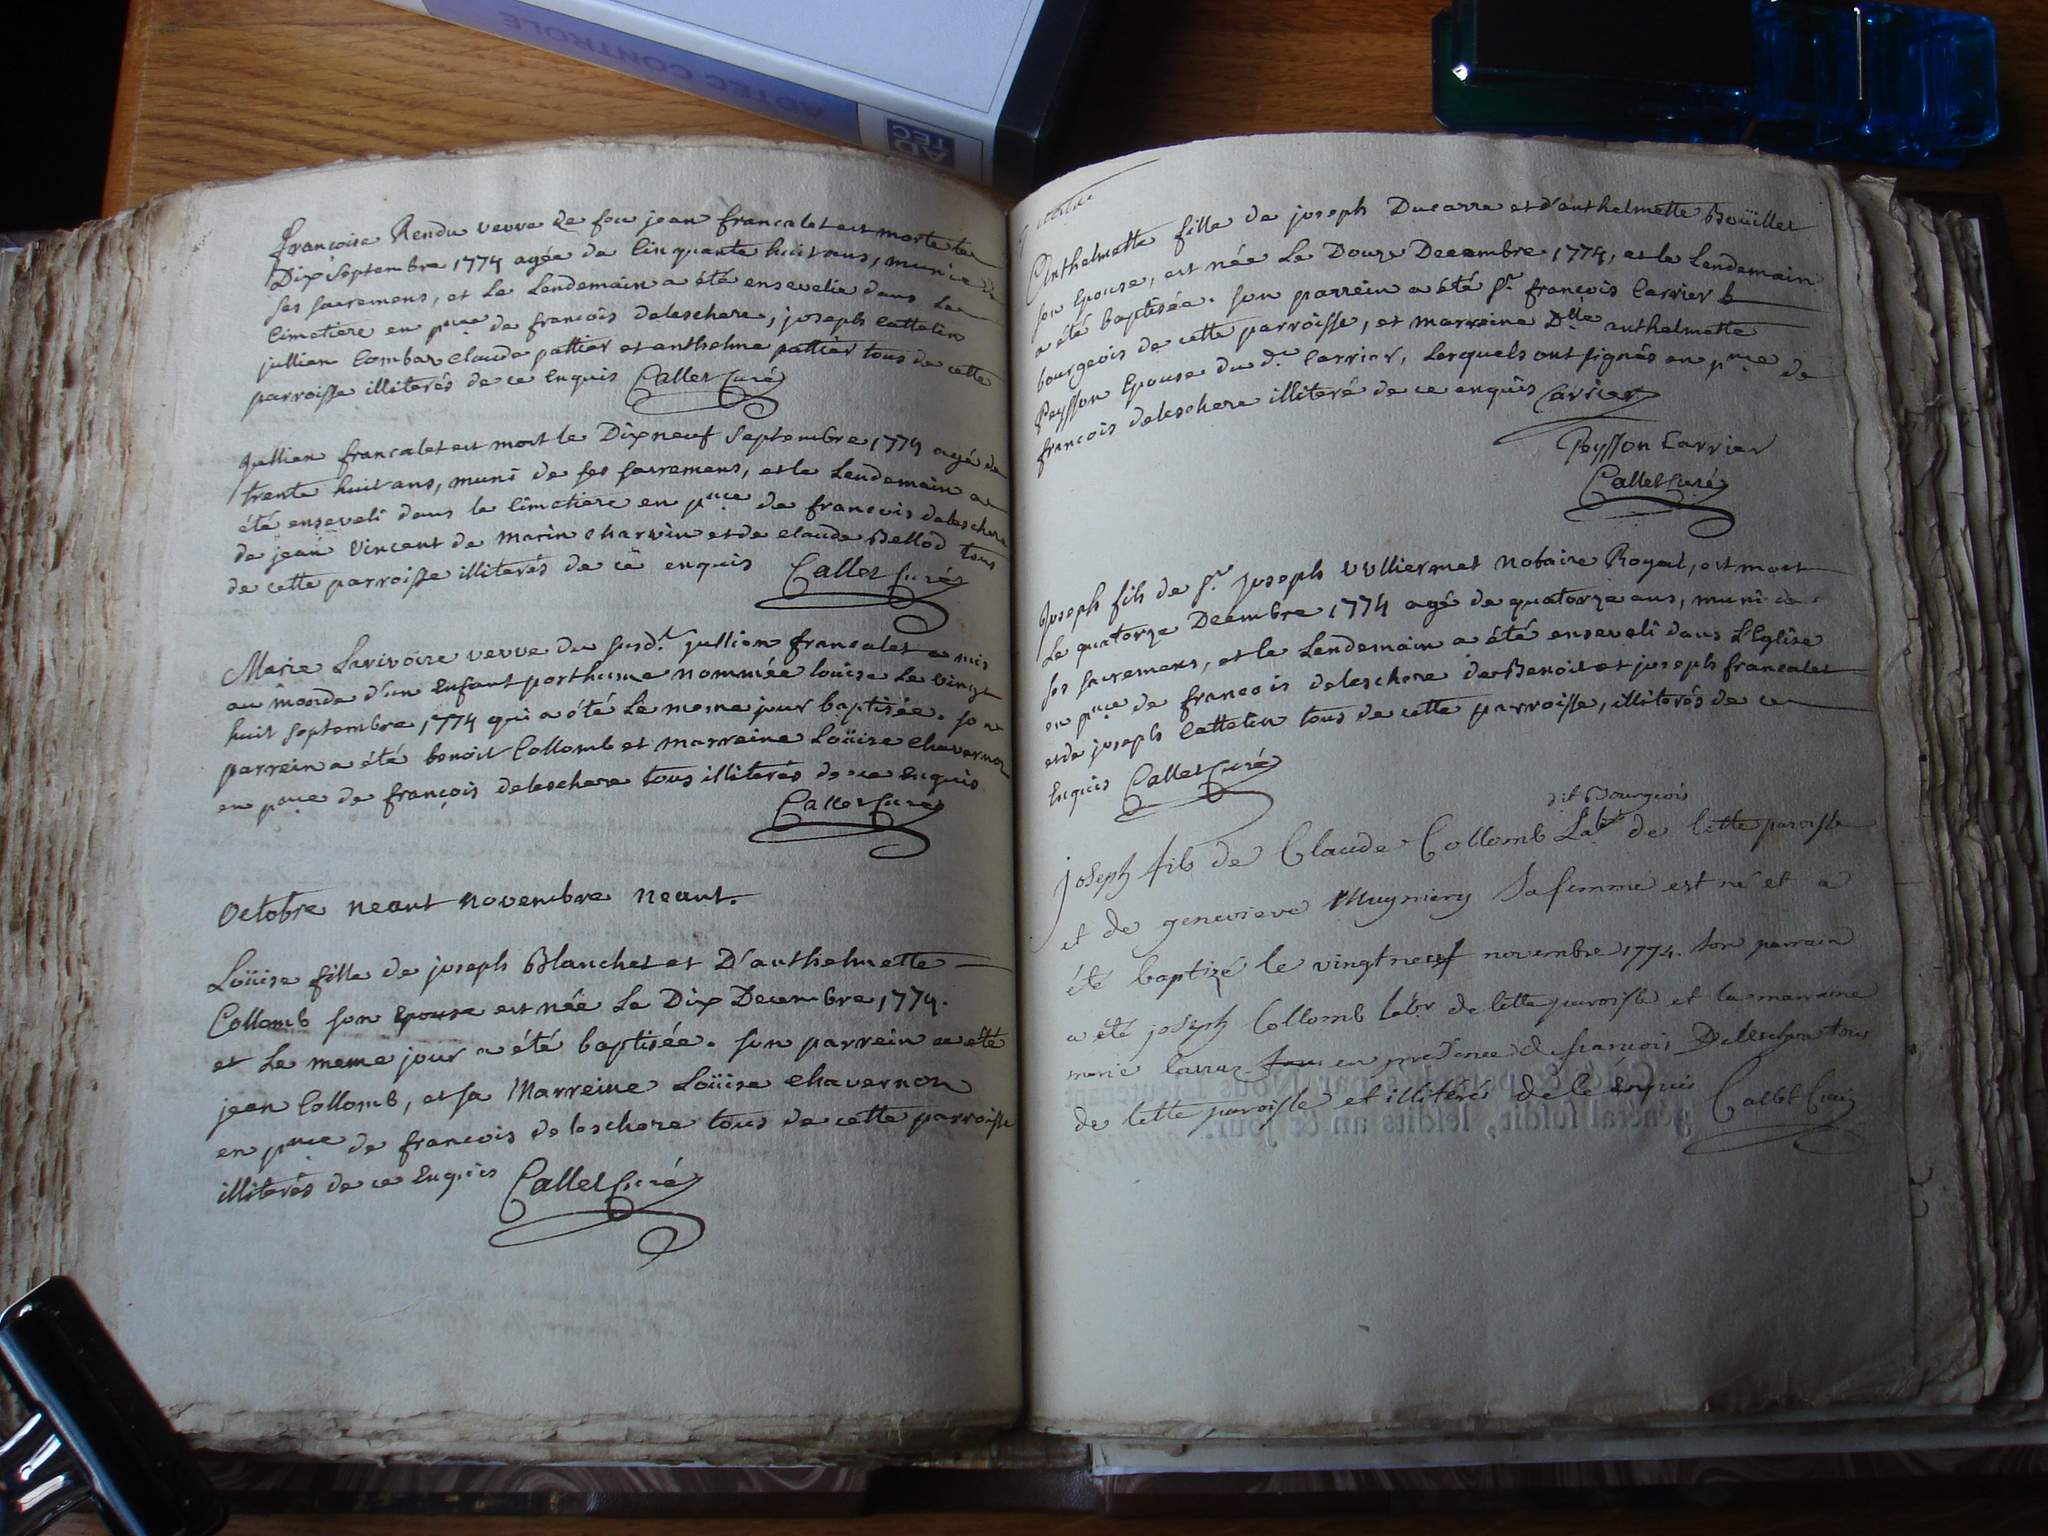 ADTEC CONTROLE
AD
TEC
françoise Rendu veuve de feu jean francalet est morte le
Dix Septembre 1774 agée de Cinquante huit ans, munie de
ses sacremens, et Le Lendemain a été ensevelie dans Le
Cimetiere en pnce de francois deleschere, joseph Cattelin
jullien Combar Claude pattier et anthelme pattier tous de cette
parroisse illiterés de ce Enquis Callet Curé
Jullien francalet est mort le Dixneuf Septembre 1774 agé de
trente huit ans, muni de ses sacremens, et le Lendemain a
été enseveli dans le Cimetiere en pnce de francois deleschere
de jean Vincent de Marin Charvin et de Claude Bellod tous
de cette parroisse illiterés de ce enquis Callet Curé
Marie Larivoire veuve du susdt. jullien francalet a mis
au monde d'un Enfant posthume nommée louise Le Vingt
huit Septembre 1774 qui a été Le meme jour baptisée. son
parrein a été benoit Collomb et marreine Loüise Chavernon
en pnce de françois deleschere tous illiterés de ce Enquis
Callet Curé
Octobre neant novembre neant.
Loüise fille de joseph Blanchet et D'anthelmette
Collomb son Epouse est née Le Dix Decembre 1774.
et Le meme jour a été baptisée. son parrein a eté
jean Collomb, et sa Marreine Loüise Chavernon
en pnce de francois deleschere tous de cette parroisse
illiterés de ce Enquis Callet Curé
Anthelmette fille de joseph Ducarre et d'anthelmette Boüillet
son Epouse, est née Le Douze Decembre 1774, et le Lendemain
a été baptisée. son parrein a été Sr. françois Carrier
bourgeois de cette parroisse, et marreine Dlle anthelmette
Peysson Epouse du dt. Carrier, Lesquels ont signés en pnce de
francois deleschere illiteré de ce enquis Carrier
Peysson Carrier
Callet Curé
Joseph fils de Sr. Joseph Vulliermet Notaire Royal, est mort
Le quatorze Decembre 1774 agé de quatorze ans, muni de
ses sacremens, et le Lendemain a été enseveli dans L'Eglise
en pnce de francois deleschere de Benoit et joseph francalet
et de joseph Cattelin tous de cette parroisse, illiterés de ce
Enquis Callet Curé
dit Bourgeois
joseph fils de Claude Collomb Labr. de Cette paroisse
et de genevieve Mugniery Sa femme est né et a
été baptizé le vingtneuf novembre 1774. Son parrain
a été joseph Collomb labr de Cette paroisse et la marraine
marie en presence de francois Deleschere tous
de Cette paroisse et illiterés de Ce Enquis Callet Curé
général susdit, lesdits an & jour.